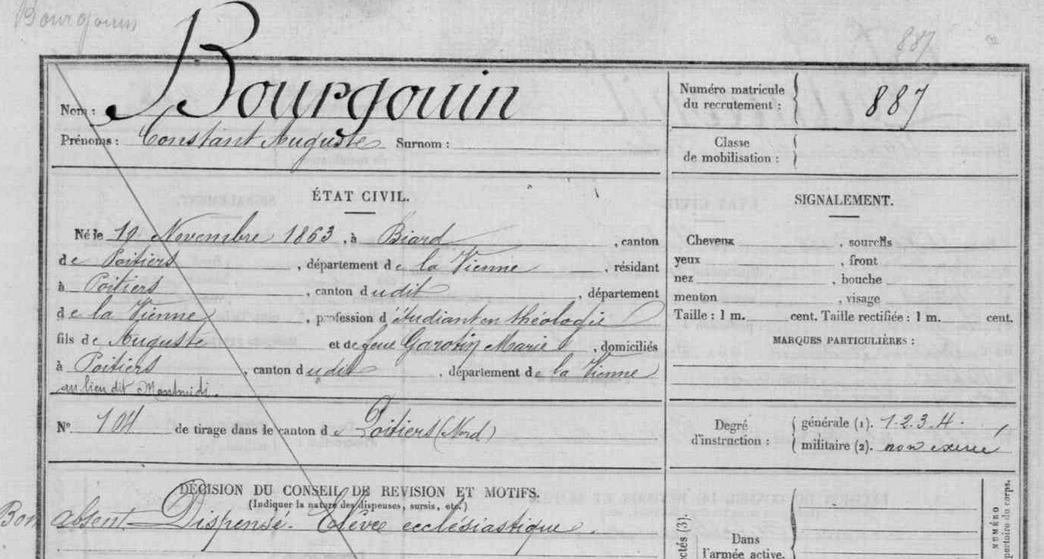 Bourgouin
887
Nom : Bourgouin
Prénoms : Constant Auguste Surnom :
Numéro matricule
du recrutement : 887
Classe
de mobilisation :
ÉTAT CIVIL.
Né le 19 Novembre 1863, à Biard, canton
de Poitiers, département de la Vienne, résidant
à Poitiers, canton dudit, département
de la Vienne, profession d'étudiant en théologie
fils de Auguste et de feue Garotin Marie, domiciliés
à Poitiers, canton dudit, département de la Vienne
au lieu dit Montmidi.
SIGNALEMENT.
Cheveux , sourcils
yeux , front
nez , bouche
menton , visage
Taille : 1 m. cent. Taille rectifiée : 1 m. cent.
MARQUES PARTICULIÈRES :
N° 104 de tirage dans le canton de Poitiers (Nord)
Degré
d'instruction :
générale (1). 1.2.3.4.
militaire (2). non exercé
DÉCISION DU CONSEIL DE REVISION ET MOTIFS.
(Indiquer la nature des dispenses, sursis, etc.)
Bon absent Dispensé. Elève ecclésiastique.
Dans
l'armée active.
(3).
NUMÉRO
répertoire du corps.